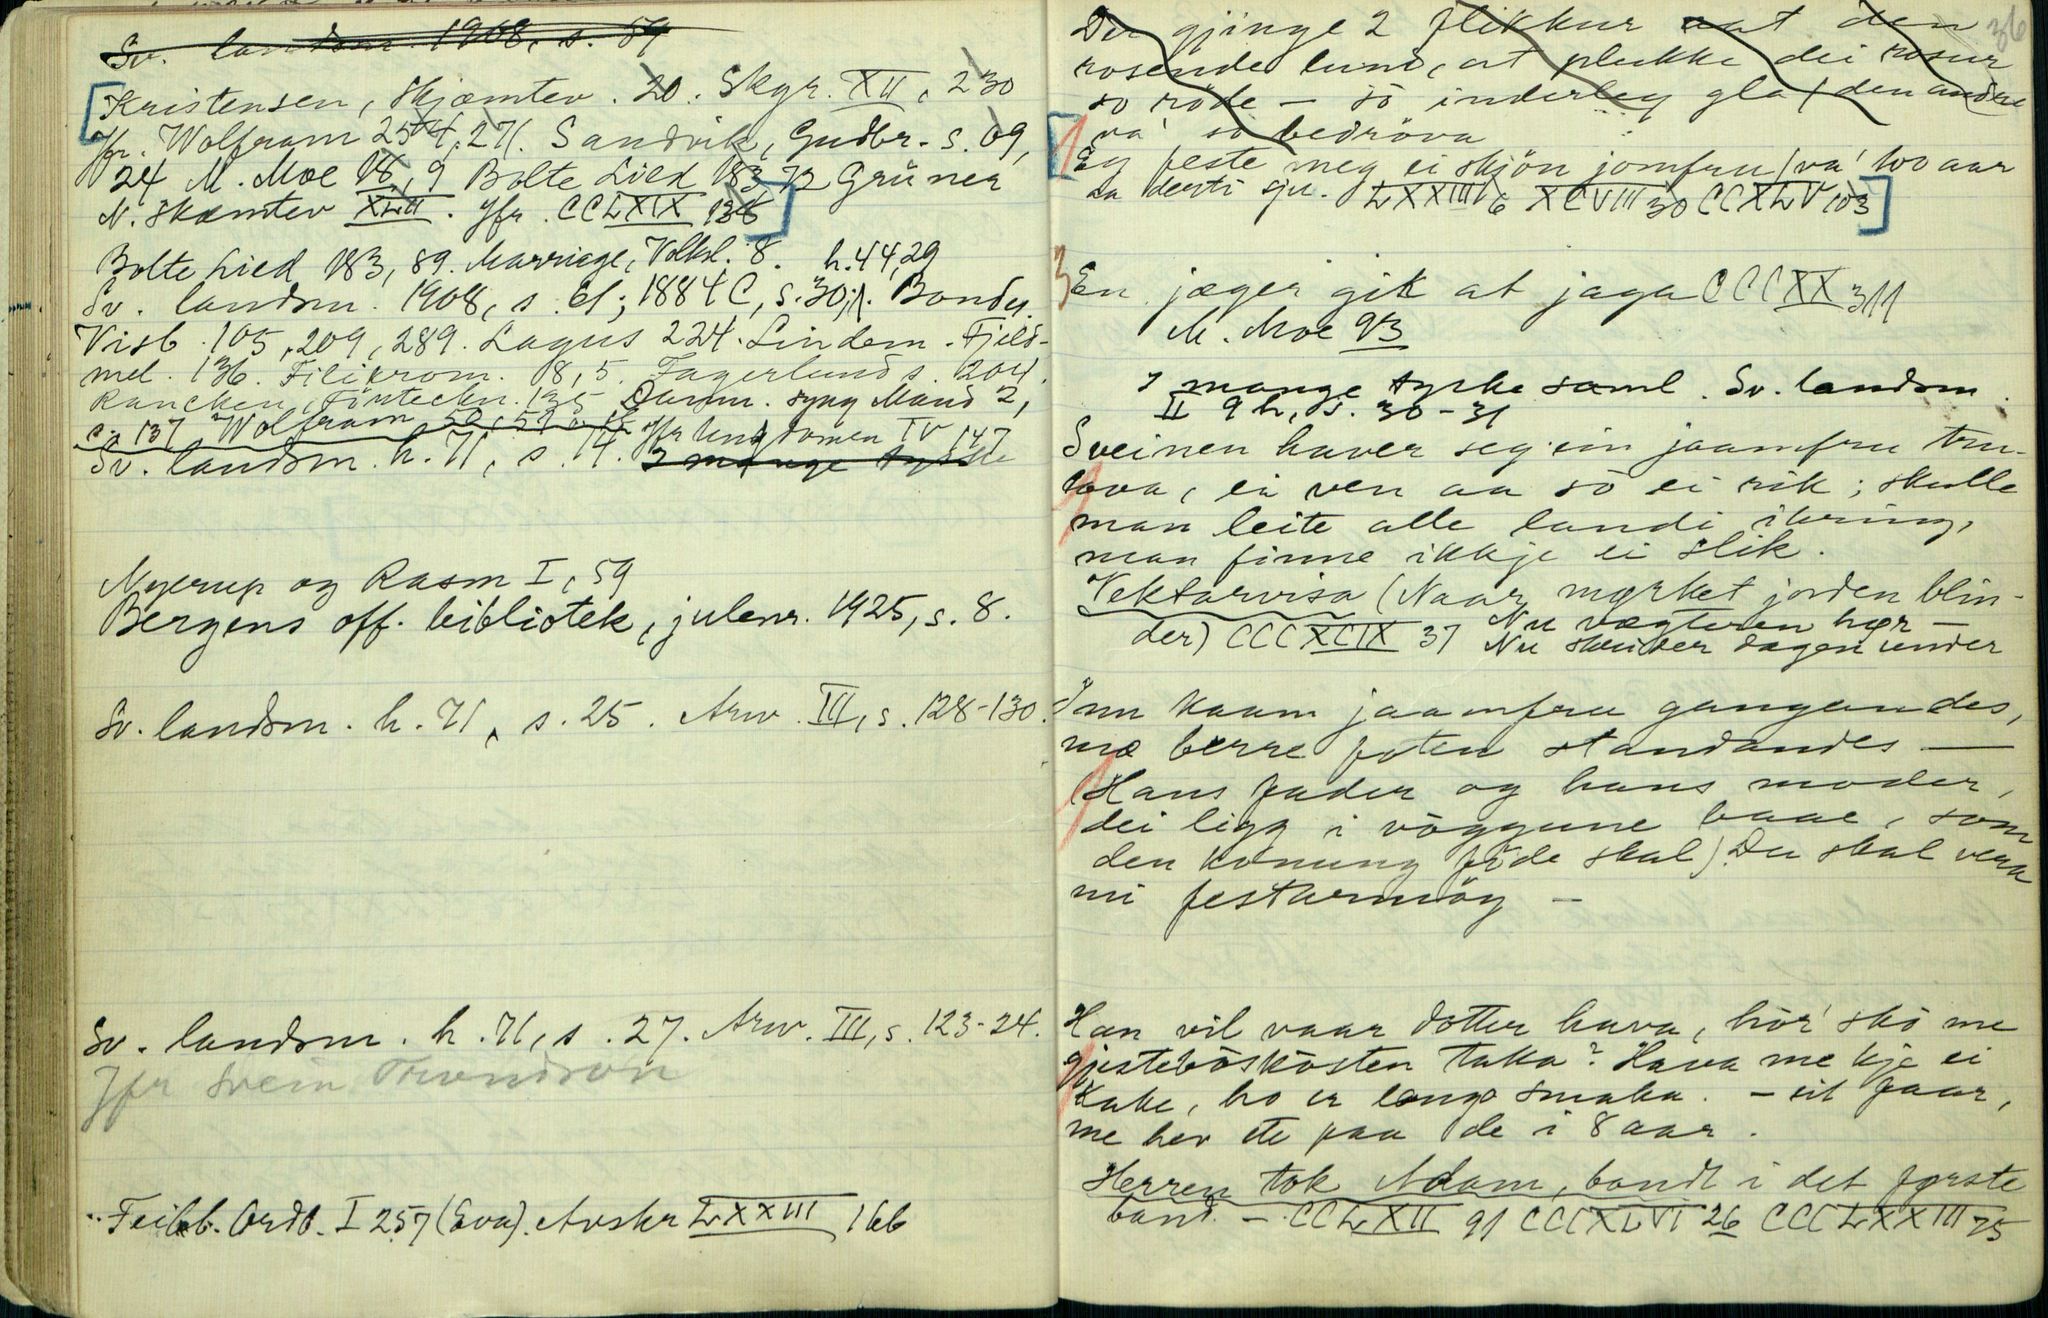 Sv. landsm. 1908, s. 59
Kristensen, Skjæmtev. 20. Skgr. XII, 230
Jfr. Wolfram 254, 271. Sandvik, Gudbr. s. 69,
24 M. Moe 18, 9 Bolte Lied 183, 72 Grüner
N. Skæmtev XLII. Jfr. CCLXIX 138
Bolte Lied 183, 89. Marriage, Volksl. 8. h. 44, 29
Sv. landsm. 1908, s. 61; 1884 C, s. 30; Bondes.
Visb. 105, 209, 289. Lagus 224. Lindem. Fjeld-
mel. 136. Filikrom. 18, 5. Fagerlund s. 204.
Rancken, Förteckn. 135 Danm. syng Maud 2,
137 Wolfram 50, 59 Jfr Ungdomen IV 147
Sv. landsm. h. 71, s. 14. I mange tykkte
Nyerup og Rasm I, 59
Bergens off. bibliotek, julenr. 1925, s. 8.
Sv. landsm. h. 71, s. 25. Arw. III, s. 128-130.
Sv. landsm. h. 71, s. 27. Arw. III, s. 123-24.
Jfr Svein Trondson
Feilb. Ordb. I 257 (Eva). Avskr LXXIII 166
36
Der gjinge 2 flikkur aat den
rosende lund, at plukke dei rosur
so röde – sö inderleg gla / den andre
va' so bedröva
1 Eg feste meg ei skjön jomfru / va' 100 aar
sa derti sju. LXXIII 6 XCVIII 30 CCXLV 103
3 En jæger gik at jaga CCCXX 311
M. Moe 93
I mange tyske saml. Sv. landsm.
II 9 h, s. 30-31
Sveinen haver seg ein jaamfru tru-
lova, ei ven aa sö ei rik; skulle
man leite alle landi ikring,
man finne ikkje ei slik.
Vektarvisa (Naar mørket jorden blin-
der) CCCXCIX 37 Nu vægteren hør –
Nu skrider dagen under
Inn kaam jaamfru gangandes,
mæ berre foten standandes –
(Hans fader og hans moder,
dei ligg i vöggune baae, som
den konung föde skal) Du skal vera
mi festarmöy –
Han vil vaar dotter hava, hör' skö me
gjestebösköster taka? Hava me kje ei
kake, ho er lange smaka. – eit faar,
me hev ete paa de i 8 aar.
Herren tok Adam, bandt i det første
band. – CCLXII 91 CCCXLVI 26 CCCLXXIII 75